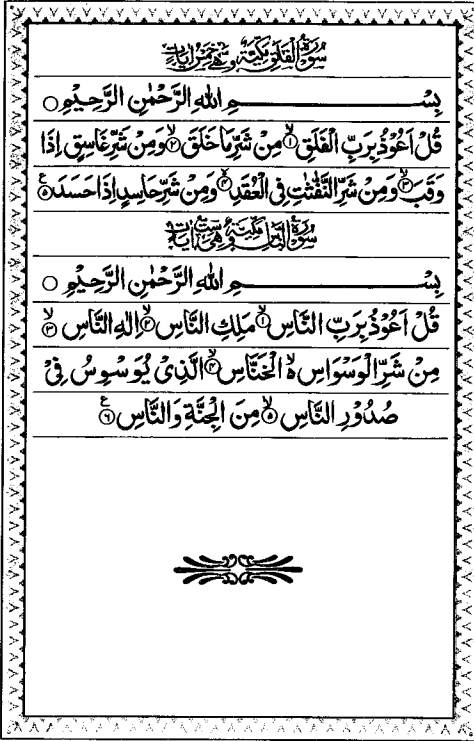 سُوْرَةُ الْفَلَقِ مَكِّيَّةٌ وَّهِيَ خَمْسُ اٰيَاتٍ
بِسْــــــــمِ اللهِ الرَّحْمٰنِ الرَّحِيْمِ ○
قُلْ اَعُوْذُ بِرَبِّ الْفَلَقِ ۙ﴿۱﴾ مِنْ شَرِّ مَا خَلَقَ ۙ﴿۲﴾ وَمِنْ شَرِّ غَاسِقٍ اِذَا
وَقَبَ ۙ﴿۳﴾ وَمِنْ شَرِّ النَّفّٰثٰتِ فِى الْعُقَدِ ۙ﴿۴﴾ وَمِنْ شَرِّ حَاسِدٍ اِذَا حَسَدَ ﴿۵﴾ ع
سُوْرَةُ النَّاسِ مَكِّيَّةٌ وَّهِيَ سِتُّ اٰيَاتٍ
بِسْــــــــمِ اللهِ الرَّحْمٰنِ الرَّحِيْمِ ○
قُلْ اَعُوْذُ بِرَبِّ النَّاسِ ۙ﴿۱﴾ مَلِكِ النَّاسِ ۙ﴿۲﴾ اِلٰهِ النَّاسِ ۙ﴿۳﴾
مِنْ شَرِّ الْوَسْوَاسِ ۵ۙ الْخَنَّاسِ ۙ﴿۴﴾ الَّذِىْ يُوَسْوِسُ فِىْ
صُدُوْرِ النَّاسِ ۙ﴿۵﴾ مِنَ الْجِنَّةِ وَالنَّاسِ ﴿۶﴾ ع